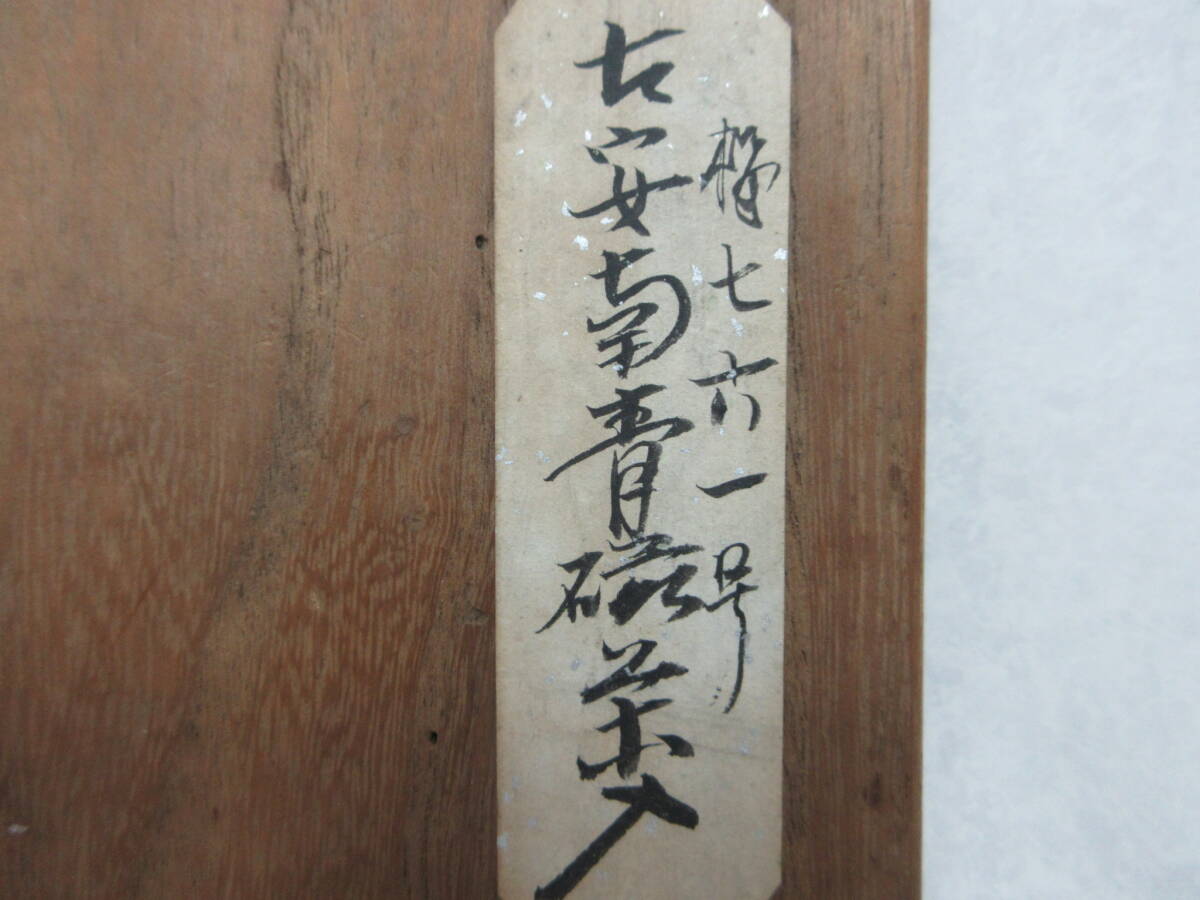 七六一号
古安南青磁茶入